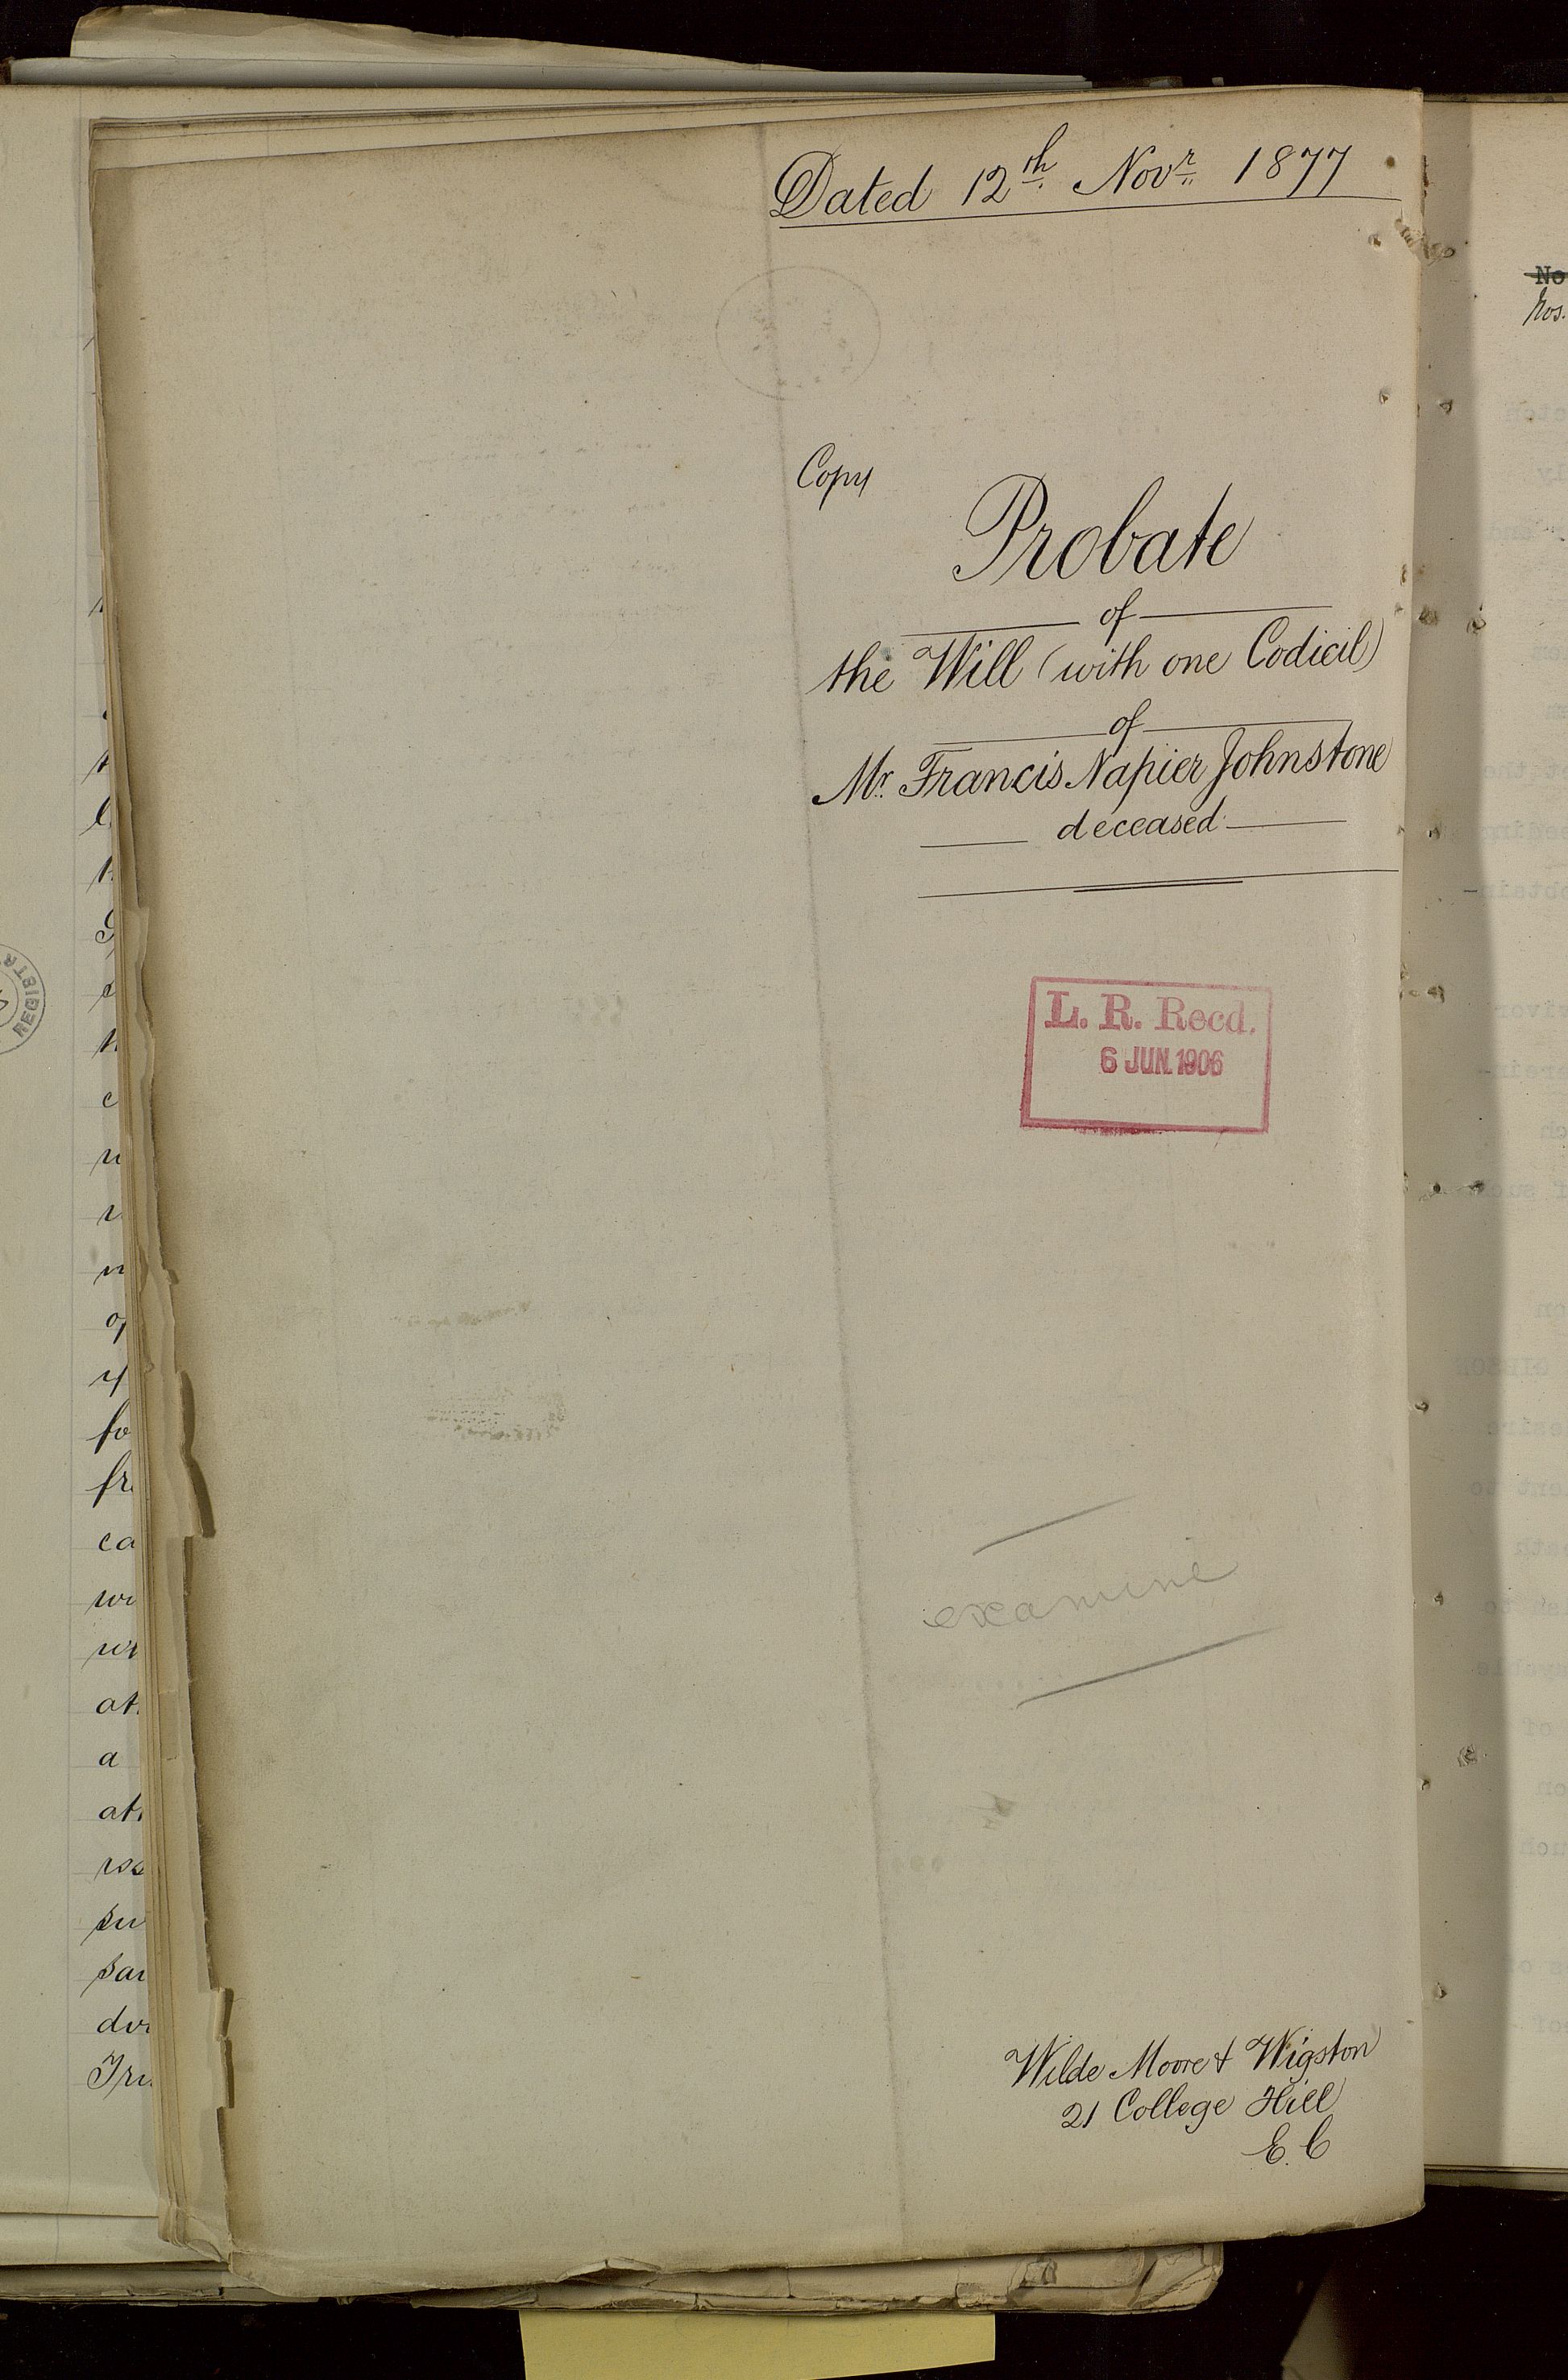 Dated 12th Novr 1877
Copy
Probate
of
the Will (with one Codicil)
of
Mr. Francis Napier Johnstone
deceased
L. R. Recd.
6 JUN. 1906
examine
Wilde Moore & Wigston
21 College Hill
E. C
No
Nos.
fo
fr
ca
at
a
at
su
sa